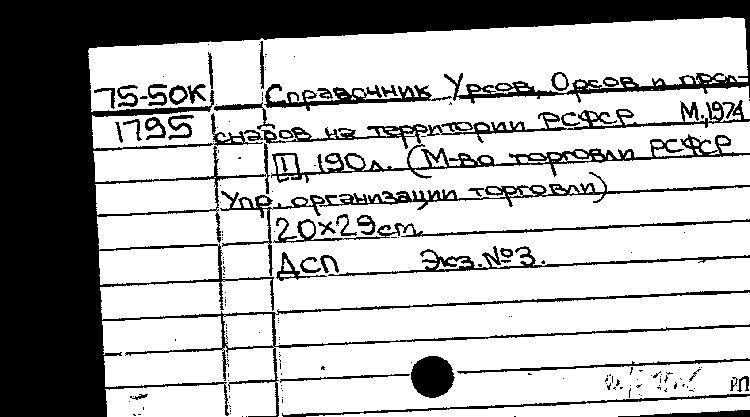 75-50К Справочник Урсов, Орсов и прод-
1795 снабов на территории РСФСР М., 1974
[1], 190л. (М-во торговли РСФСР
Упр. организации торговли)
20х29см.
ДСП Экз.№3.
РП